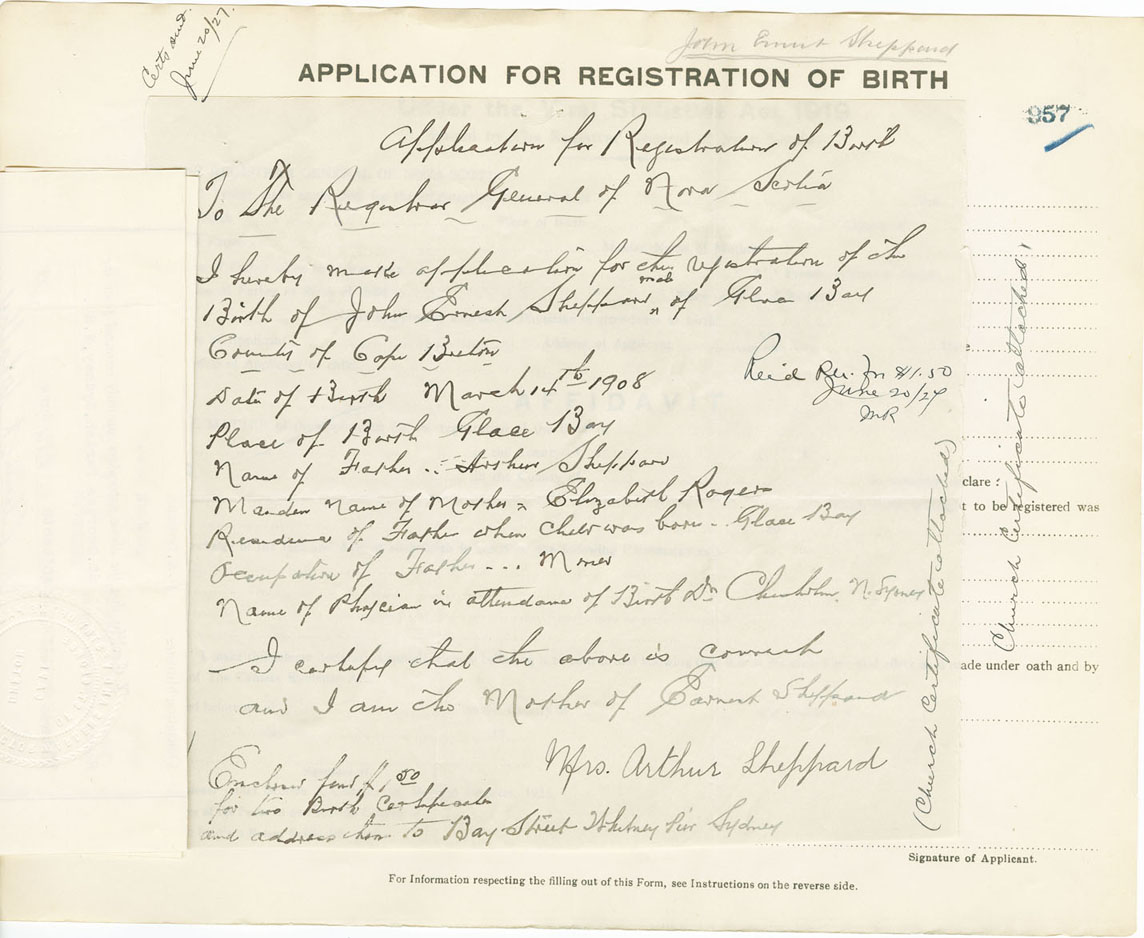 Certs and.
June 20/27.
John Ernest Sheppard
APPLICATION FOR REGISTRATION OF BIRTH
957
Application for Registration of Birth
To The Registrar General of Nova Scotia
I hereby make application for the registration of the
male
Birth of John Ernest Sheppard of Glace Bay
County of Cape Breton
Date of Birth March 14th 1908
Rec'd Rec. for $1.50
June 20/27
MR
Place of Birth Glace Bay
Name of Father .. Arthur Sheppard
Maiden Name of Mother - Elizabeth Rogers
Residence of Father when Child was born - Glace Bay
Occupation of Father - - - Miner
Name of Physician in attendance of Birth Dr Chisholm N. Sydney
I certify that the above is correct
and I am the Mother of Earnest Sheppard
Mrs. Arthur Sheppard
Enclosed find $1.50
for two Birth Certificates
and address them to Bay Street Whitney Pier Sydney
(Church Certificate attached)
Church Certificate attached
clare :
t to be registered was
ade under oath and by
Signature of Applicant.
For Information respecting the filling out of this Form, see Instructions on the reverse side.